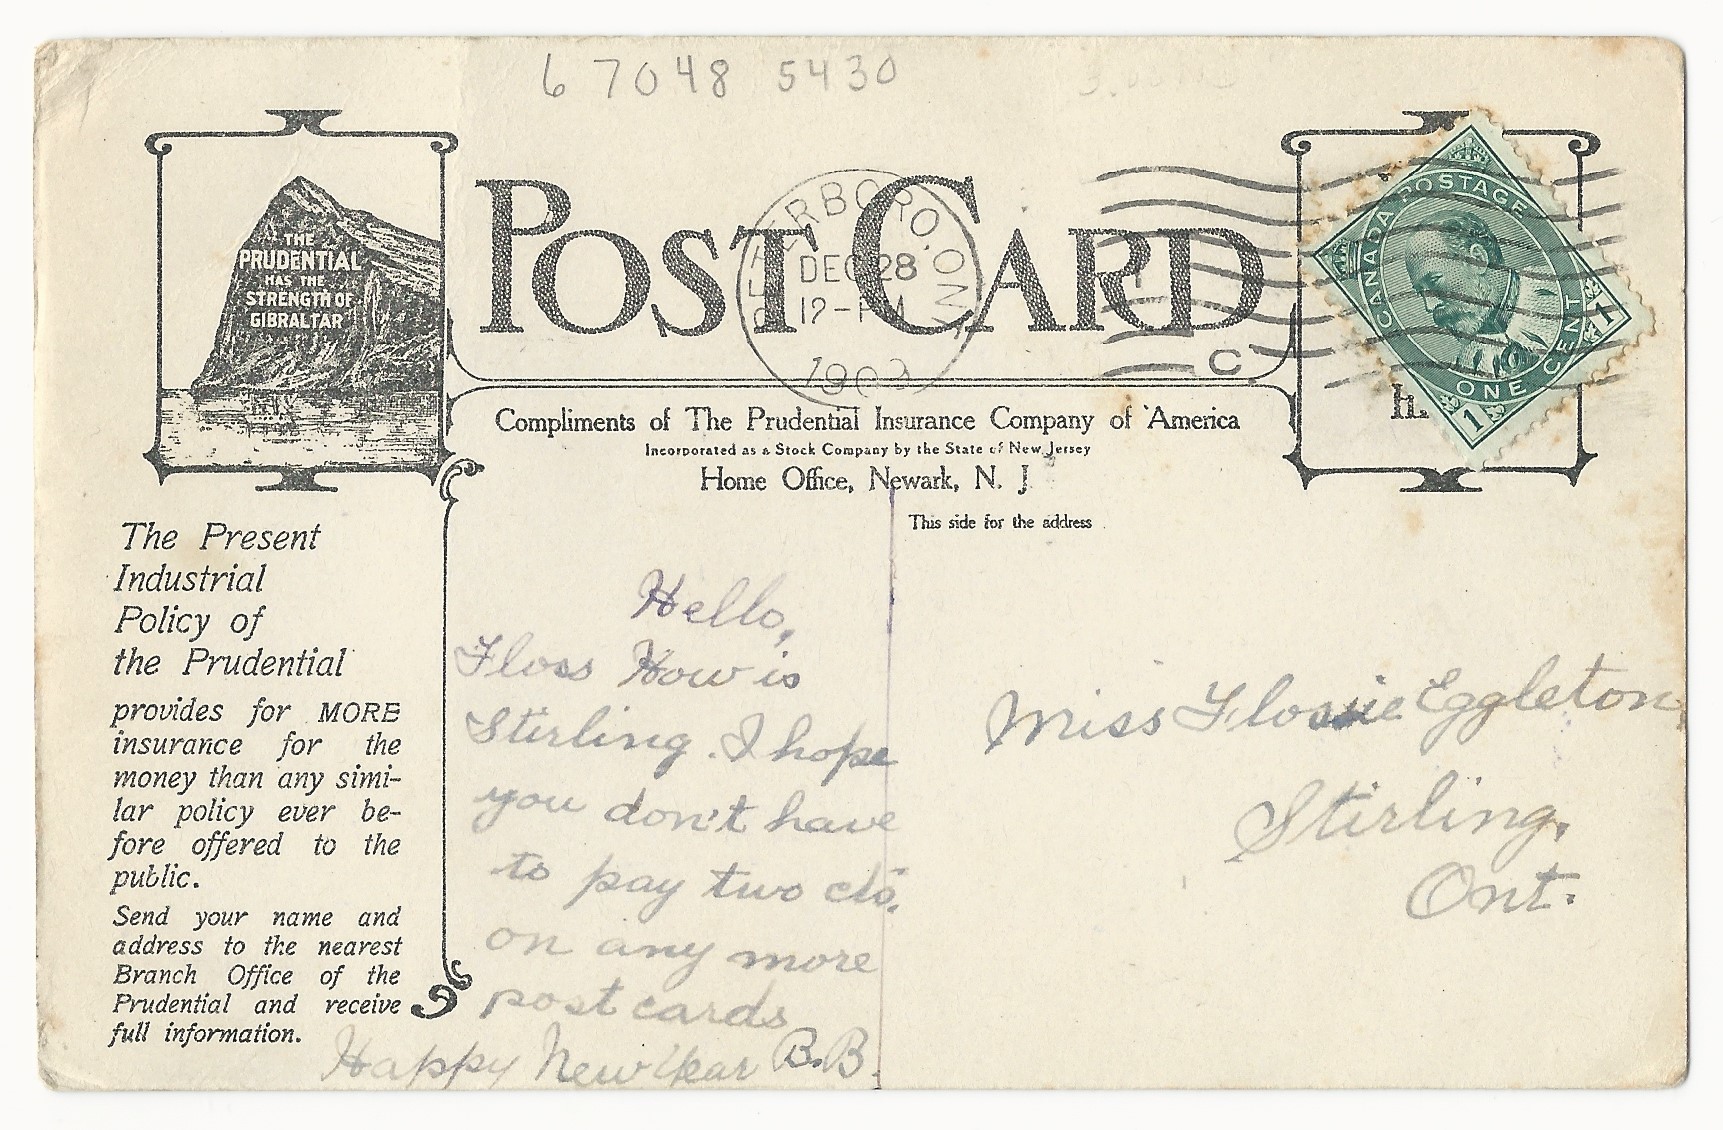 6 7048 5430
THE
PRUDENTIAL
HAS THE
STRENGTH OF
GIBRALTAR
POST CARD
ERBORO, ONT
DEC 28
12-PM
190
C
CANADA POSTAGE
ONE CENT
1
1
Compliments of The Prudential Insurance Company of America
Incorporated as a Stock Company by the State of New Jersey
Home Office, Newark, N. J.
This side for the address
The Present
Industrial
Policy of
the Prudential
provides for MORE
insurance for the
money than any simi-
lar policy ever be-
fore offered to the
public.
Send your name and
address to the nearest
Branch Office of the
Prudential and receive
full information.
Hello,
Floss How is
Stirling. I hope
you don't have
to pay two cts.
on any more
post cards
Happy New Year B.B.
Miss Flossie Eggleton
Stirling,
Ont.